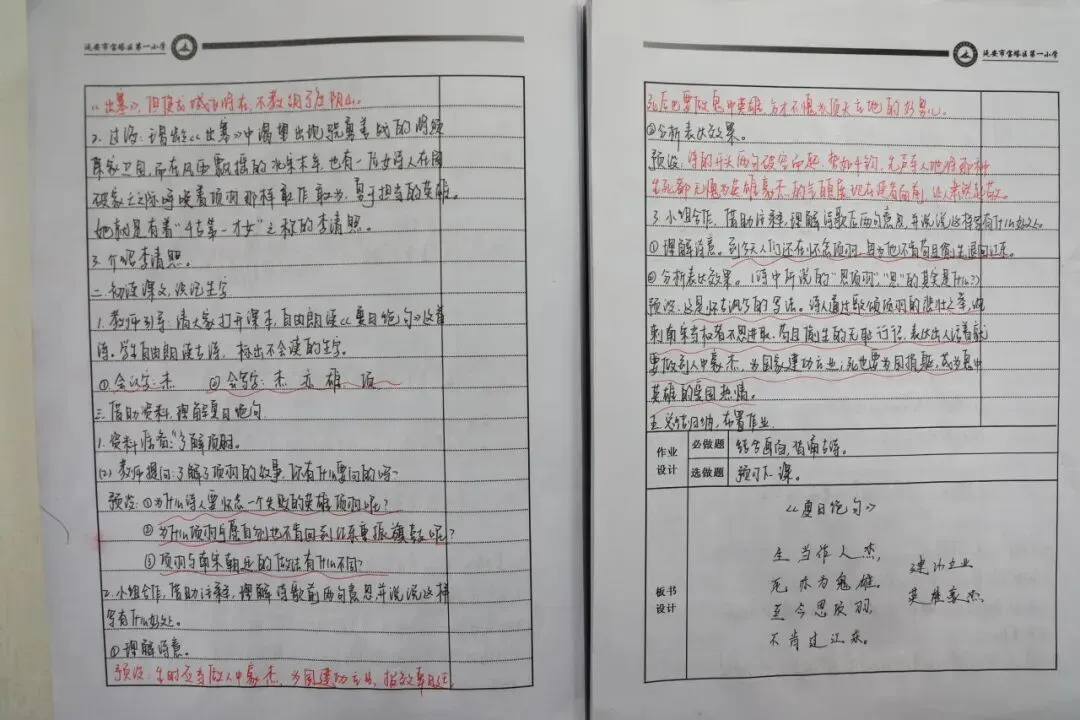 延安市宝塔区第一小学
《出塞》,但使龙城飞将在,不教胡马度阴山。
2. 过渡:诗《出塞》中渴望出现骁勇善战的将领
保家卫国,而在风雨飘摇的北宋末年,也有一位女诗人在国
破家亡之际呼唤着项羽那样敢作敢为、勇于担当的英雄。
她就是有着“千古第一才女”之称的李清照。
3. 介绍李清照。
二、初读课文,识记生字
1. 教师引导:请大家打开课本,自由朗读《夏日绝句》这首
诗。学生自由朗读古诗,标出不会读的生字。
①会认字:杰 ②会写字:杰 亦 雄 项
三、借助资料,理解夏日绝句
1. 资料 了解项羽。
(2) 教师提问:了解了项羽的故事,你有什么要问的吗?
预设:①为什么诗人要怀念一个失败的英雄项羽呢?
②为什么项羽宁愿自刎也不肯回到江东重振旗鼓呢?
③项羽与南宋朝廷的做法有什么不同?
2. 小组合作,借助注释,理解诗歌前两句意思,并说说这样
写有什么好处。
①理解诗意。
预设:生时应当做人中豪杰,为国建功立业,
延安市宝塔区第一小学
死后也要做鬼中英雄,方才不愧为顶天立地的好男儿。
②分析表达效果。
预设:诗的开头两句
生死都无愧为英雄豪杰的
3. 小组合作,借助注释,理解诗歌后两句意思,并说说这样写有什么好处。
①理解诗意。到今天人们还在怀念项羽,因为他不肯苟且偷生,退回江东。
②分析表达效果。(诗中所说的“思项羽”,“思”的其实是什么?)
预设:这是怀古讽今的写法。诗人通过歌颂项羽的悲壮之举,讽
刺南宋当权者不思进取、苟且偷生的无耻行径,表达出人活着就
要做到人中豪杰,为国家建功立业;死也要为国捐躯,成为鬼中
英雄的爱国热情。
五、总结归纳,布置作业
作业设计
必做题
结合画面,背诵古诗。
选做题
预习下一课。
板书设计
《夏日绝句》
生当作人杰,
死亦为鬼雄。
建功立业
至今思项羽,
英雄豪杰
不肯过江东。